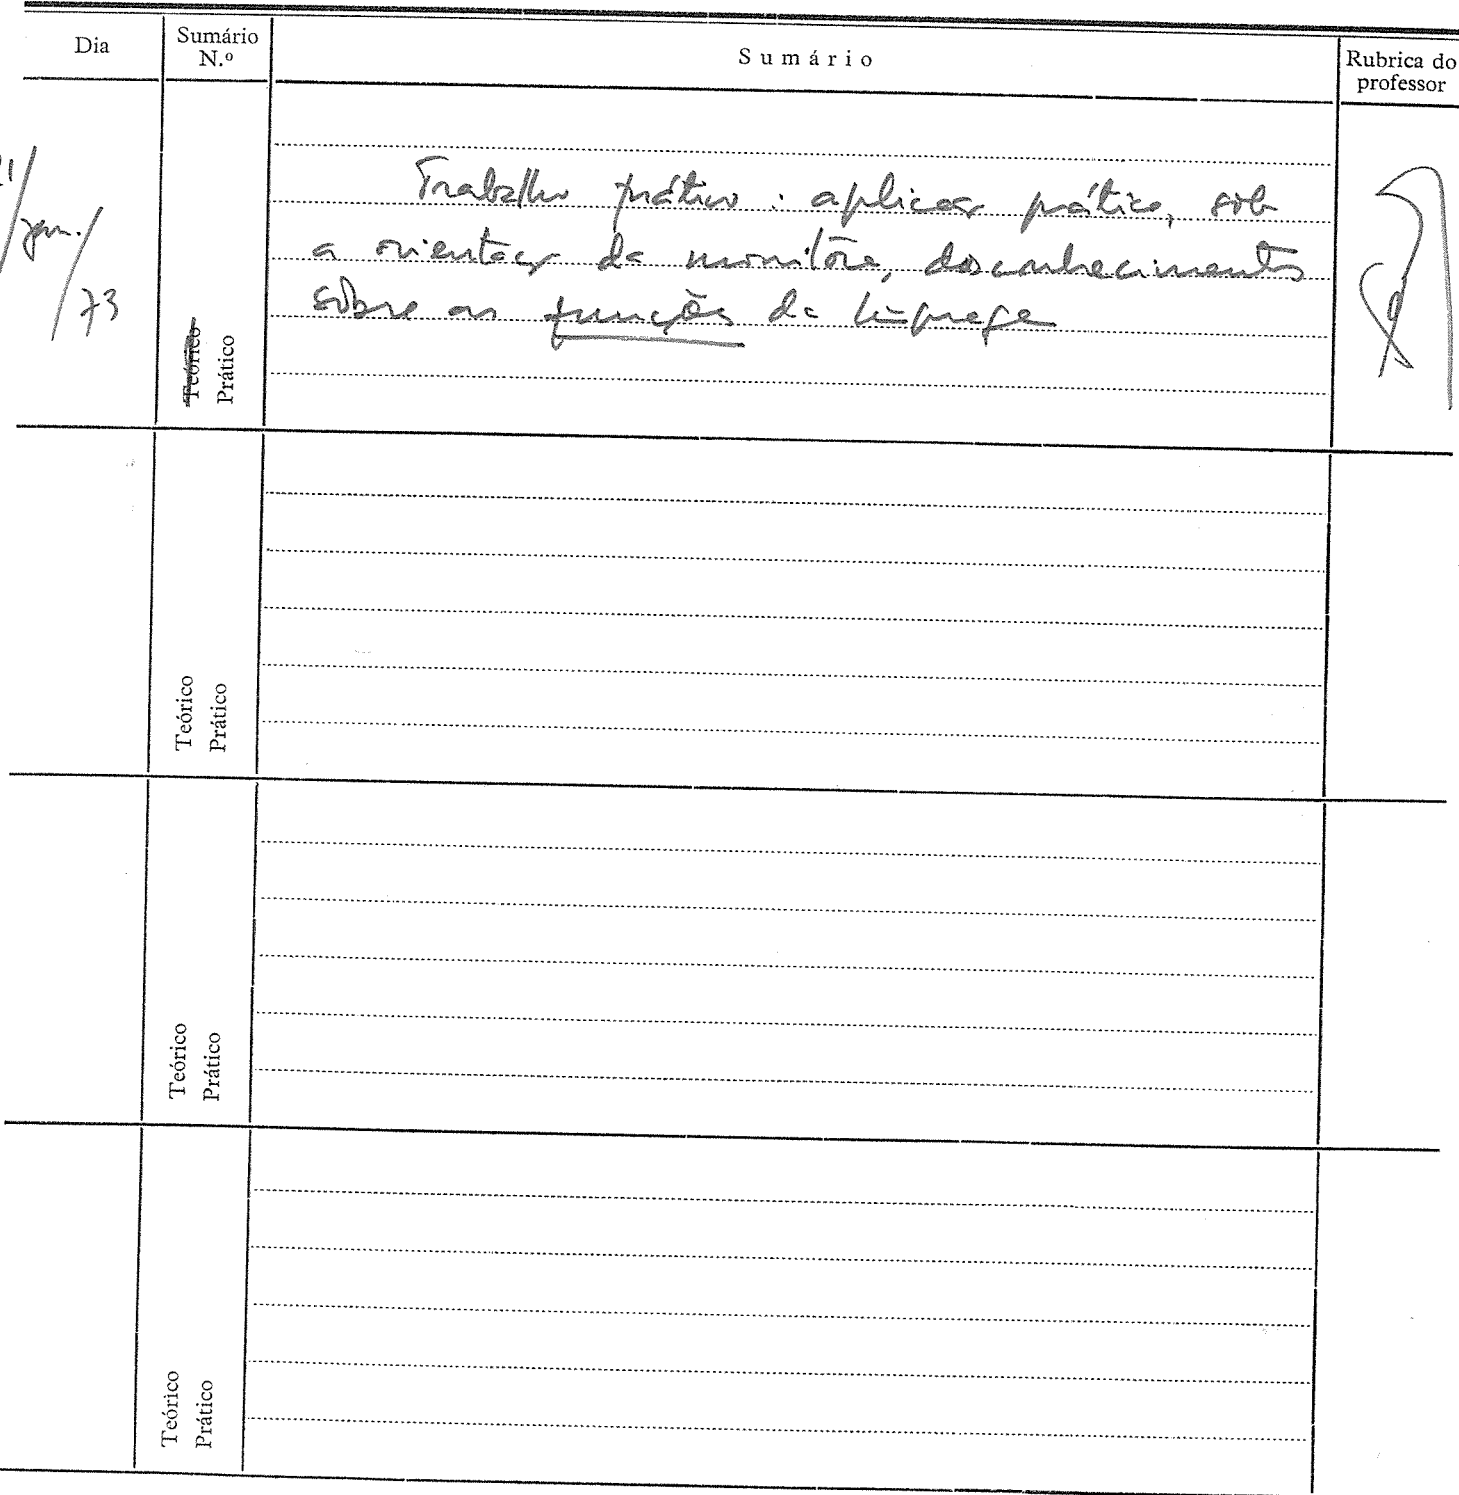 Dia
Sumário N.º
Sumário
Rubrica do professor
/jan./73
Trabalho prático: aplicação prática, sob
a orientação da monitora, dos conhecimentos
sôbre as funções da língua
Teórico
Prático
Teórico
Prático
Teórico
Prático
Teórico
Prático